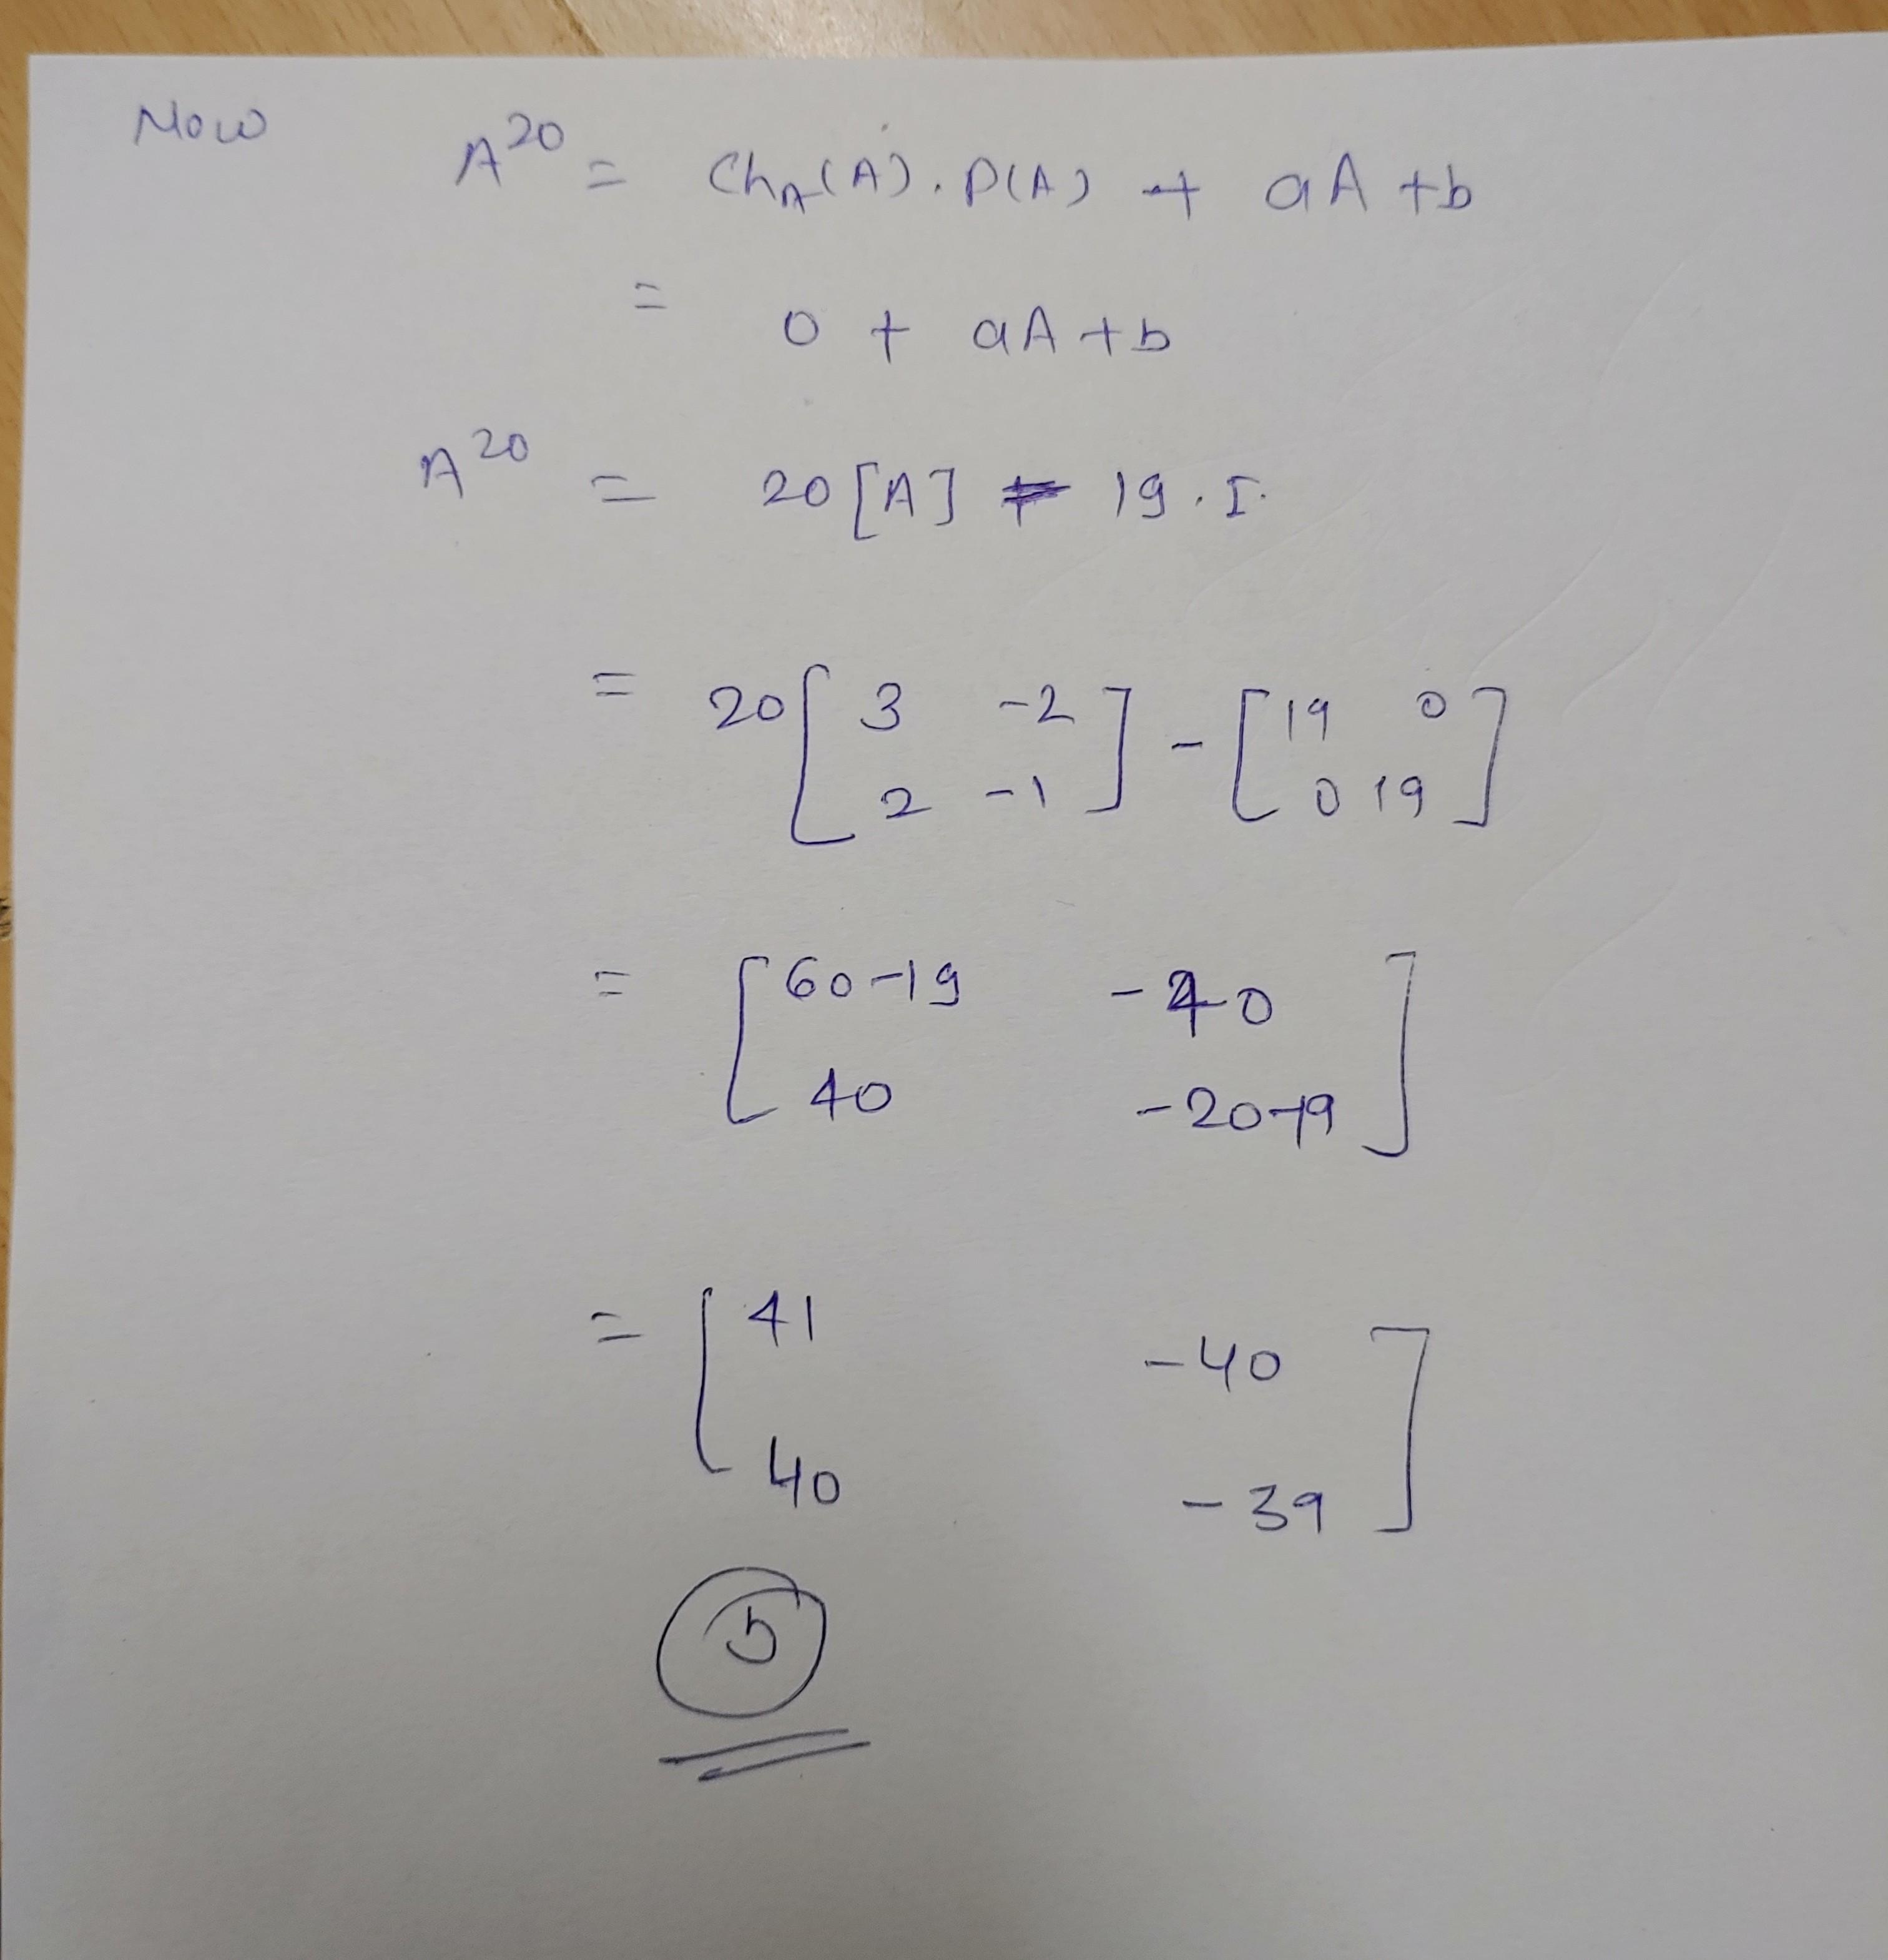 Now A^20 = Ch_A(A). P(A) + aA + b
= 0 + aA + b
A^20 = 20 [A] - 19 . I.
= 20 [ 3 -2 ] - [ 19 0 ]
2 -1 0 19
= [ 60-19 -40 ]
40 -20-19
= [ 41 -40 ]
40 -39
5